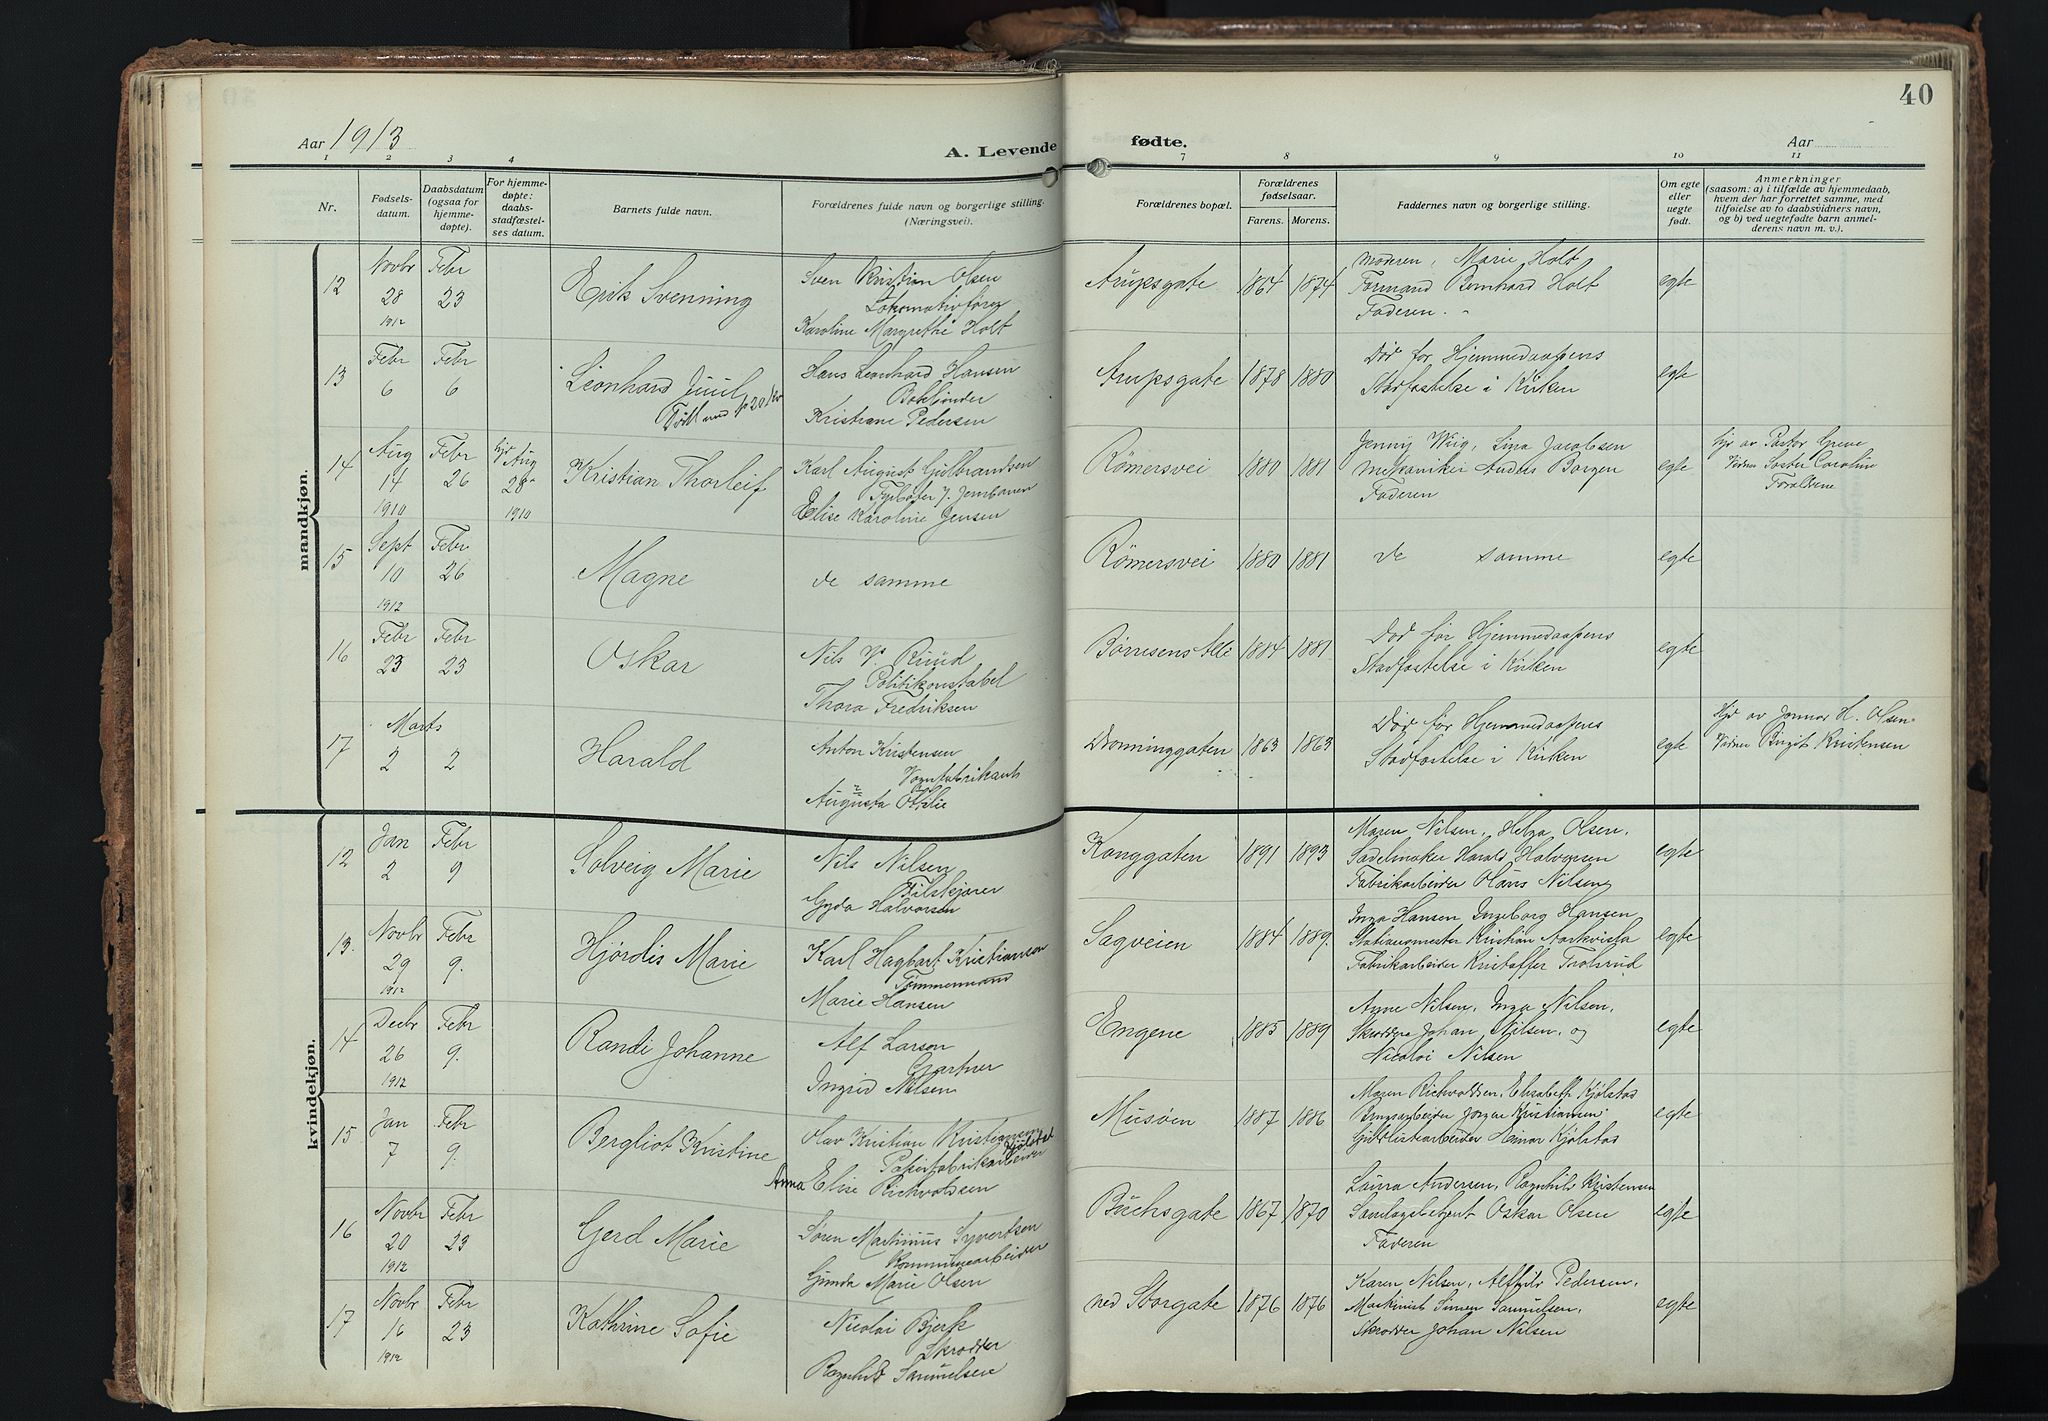 40
Aar 1913
A. Levende fødte.
Aar
1 2 3 4 7 8 9 10 11
Nr.
Fødsels-
datum.
Daabsdatum
(ogsaa for
hjemme-
døpte).
For hjemme-
døpte:
daabs-
stadfæstel-
ses datum.
Barnets fulde navn.
Forældrenes fulde navn og borgerlige stilling.
(Næringsvei).
Forældrenes bopæl.
Forældrenes
fødselsaar.
Farens. Morens.
Faddernes navn og borgerlige stilling.
Om egte
eller
uegte
født.
Anmerkninger
(saasom: a) i tilfælde av hjemmedaab,
hvem der har forrettet samme, med
tilføielse av to daabsvidners navn,
og b) ved uegtefødte barn anmel-
derens navn m. v.).
mandkjøn.
12 Novbr 28 1912 Febr 23 Erik Svenning
Sven Kristian Olsen
Lokomotivfører
Karoline Margrethe Holt
Arupsgate 1864 1874
Moderen, Marie Holt
Formand Bernhard Holt
Faderen.
egte
13 Febr 6 Febr 6 Leonhard Juul
Hans Leonhard Hansen
Bokbinder
Kristiane Pedersen
Arupsgate 1878 1880
Død før Hjemmedaapens
Stadfæstelse i Kirken
egte
14 Aug 14 1910 Febr 26 Hjd Aug 28 1910 Kristian Thorleif
Karl August Gulbrandsen
Fyrbøter v. Jernbanen
Elise Karoline Jensen
Römersvei 1880 1881
Jenny Wiig, Lina Jacobsen
Mekaniker Anders Borgen
Faderen
egte
Hjd av Pastor Greve
Vidner Søster Caroline
Forældrene
15 Sept 10 1912 Febr 26 Magne
de samme
Römersvei 1880 1881
de samme
egte
16 Febr 23 Febr 23 Oskar
Nils V. Ruud
Politikonstabel
Thora Fredriksen
Børresens Alle 1884 1881
Død før Hjemmedaapens
Stadfæstelse i Kirken
egte
17 Marts 2 2 Harald
Anton Kristensen
Vognfabrikant
Augusta Otilie
Dronninggaten 1863 1863
Død før Hjemmedaapens
Stadfæstelse i Kirken
egte
Hjd av Gunnar H. Olsen
Vidner Birgit Kristensen
kvindekjøn.
12 Jan 2 Febr 9 Solveig Marie
Nils Nilsen
Filskjærer
Gyda Halvorsen
Konggaten 1891 1893
Maren Nilsen, Helga Olsen,
Sadelmaker Harald Halvorsen
Fabrikarbeider Hans Nilsen
egte
13. Novbr 29 1912 Febr 9. Hjørdis Marie
Karl Hagbart Kristiansen
Tømmermand
Marie Hansen
Sagveien 1884 1889.
Inga Hansen, Ingeborg Hansen
Stationsmester Kristian
Fabrikarbeider Kristoffer
egte
14 Decbr 26 1912 Febr 9. Randi Johanne
Alf Larson
Gartner
Ingrid Nilsen
Engene 1885 1889
Anne Nilsen, Inga Nilsen,
Skrædder Johan Nilsen, og
Nicolai Nilsen
egte
15 Jan 7 Febr 9. Bergliot Kristine
Olav Kristian Kristiansen
Kjølstad
Papirfabrikarbeider
Anna Elise Rickvoldsen
Musøen 1887 1886
Maren Rickvoldsen, Elisabeth Kjölstad
Brugsarbeider Jørgen Kristiansen
Guldlistarbeider Einar Kjølstad
egte
16 Novbr 20 1912 Febr 23 Gerd Marie
Søren Martinius Syvertsen
Kommunearbeider
Gunda Marie Olsen
Buchsgate 1867 1870
Laura Andersen, Ragnhild Kristensen
Samlagsbetjent Oskar Olsen
Faderen
egte
17 Novbr 16 1912 Febr 23 Kathrine Sofie
Nicolai Bjerk
Skrædder
Ragnhild Samuelsen
ned Storgate 1876 1876
Karen Nilsen, Alfhild Pedersen,
Maskinist Simen Samuelsen,
Skrædder Johan Nilsen
egte